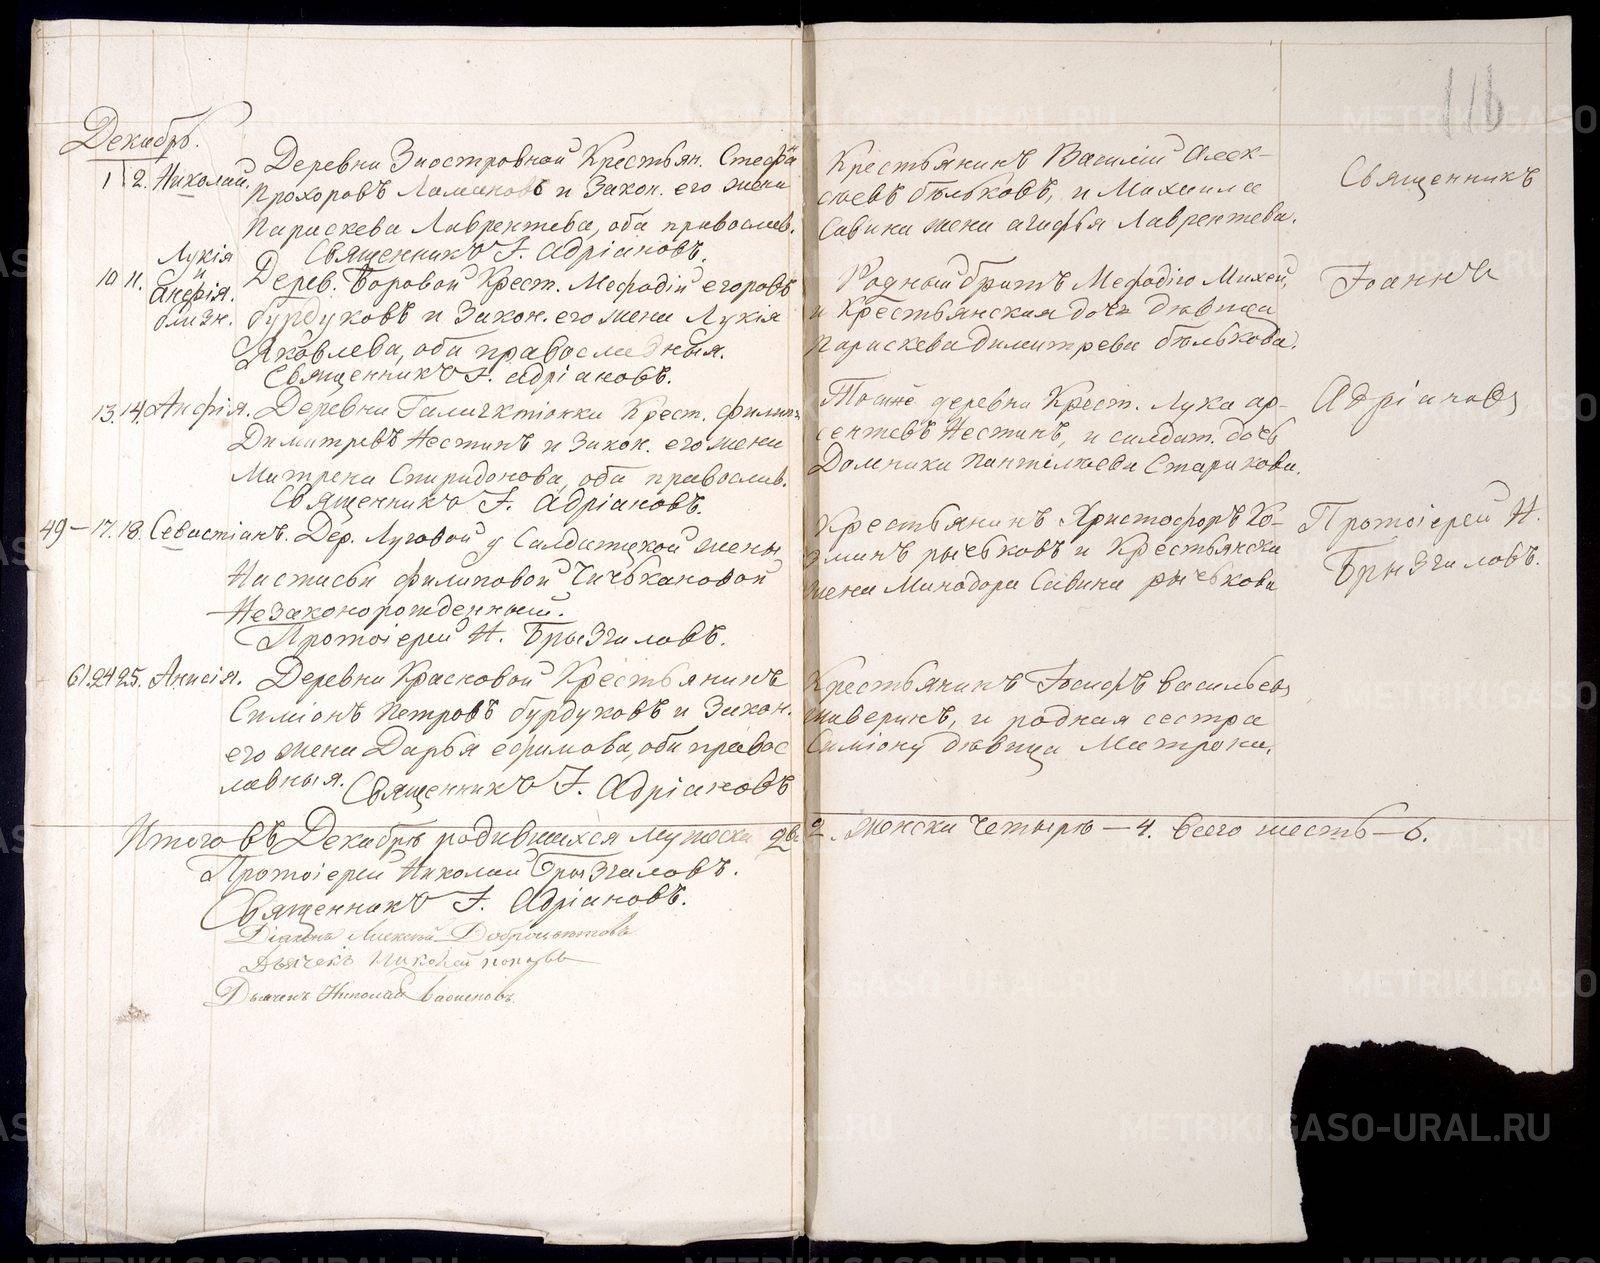 116
Декабрь.
1 2. Николай. Деревни Заостровной Крестьян. Стефан
Прохоровъ и Закон. его жена
Параскева Лаврентьева, оба православ.
Священникъ І. Адріановъ.
Крестьянинъ Василій Алек-
сѣевъ бѣльковъ, и Михаила
Савина жена агафья Лаврентьева.
Священникъ
10 11. Лукія
и
Анфія.
близн.
Дерев. Боровой Крест. Мефодій егоровъ
бурдуковъ и Закон. его жена Лукія
Яковлева, оба православныя.
Священникъ І. адріановъ.
Родный братъ Мефодію Михей,
и Крестьянская дочь дѣвица
параскева димитрева бѣлькова.
Іоаннъ
13. 14. Анфія. Деревни Крест. филипъ
Димитревъ Нестинъ и Закон. его жена
Матрена Спиридонова, оба православ.
Священникъ І. Адріановъ.
Тоежe деревни Крест. Лука ар-
сентевъ Нестинъ, и салдат. дочь
Домника Пантелѣева Старикова.
Адріановъ
49 – 17. 18. Севастіанъ. Дер. Луговой у Салдатской жены
Настасьи филиповой Чичькановой
Незаконорожденный.
Протоіерей Н. Брызгаловъ.
Крестьянинъ Христофоръ Ко-
зминъ рычьковъ и Крестьянска
жена Минодора Савина рычькова
Протоіерей Н.
Брызгаловъ.
61. 24 25. Анисія. Деревни Красновой Крестьянинъ
Симіонъ Петровъ бурдуковъ и Закон.
его жена Дарья ефимова, оба правос
лавныя. Священникъ І. Адріановъ
Крестьянинъ Іосифъ васильевъ
и родная сестра
Симіону дѣвица Матрона.
Итого въ Декабрѣ родившихся мужеска два 2. женска четыре – 4. всего шесть – 6.
Протоіерей Николай Брызгаловъ.
Священникъ І. Адріановъ.
Діаконъ Алексей
Дьячекъ Николай поповъ
Николай
METRIKI.GASO-URAL.RU